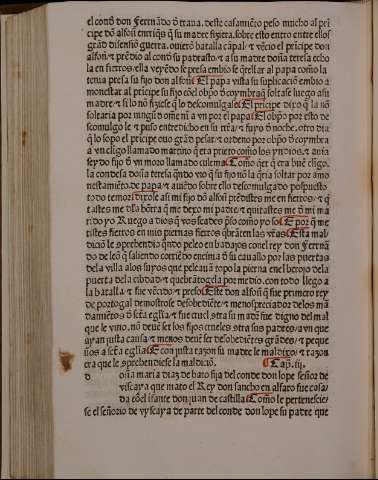 el conde don Fernãdo d̃ trana. deste casamiẽto peso mucho al prĩ
cipe dõ alfonso enriq̃s q̃ su madre fiziera. sobre esto entro entre ellos
grãd disensiõ guerra. ouierõ batalla cãpal. ⁊ vẽcio el prĩcipe don
alfõn. ⁊ prẽdio al conde su padrasto ⁊ a su madre doña teresa echo
la en fierros ⁊ ella veyẽdo se presa embio se q̃rellar al papa como la
tenia presa su fijo don alfonso. El papa vista su suplicaciõ embio a
monestar al prĩcipe su fijo cõ el obpo d̃ coymbra q̃ soltase luego a su
madre ⁊ si lo nõ fiziese q̃ lo descomulgase. El prĩcipe dixo q̃ la nõ
soltaria por ningũd omẽ nĩ a vn por el papa. El obpo por esto de
scomulgo le ⁊ puso entredicho en su tr̃ra ⁊ fuyo d̃ noche. otro dia
q̃ lo sopo el prĩcipe ouo grãd pesar ⁊ ordeno por obpo d̃ coymbra
a vn cligo llamado martino q̃ era prieto como los yndios. ⁊ auia
seydo fijo d̃ vn moro llamado culema. Como q̃er q̃ era buẽ cligo.
la condesa doña teresa q̃ndo vio q̃ su fijo nõ la q̃ria soltar por amo
nestamiẽto de papa ⁊ auiẽdo sobre ello descomulgado pospuesto
todo temor dixo le asi mi fijo dõ alfonso prẽdistes me en fierros ⁊ q̃
tastes me d̃ la hõrra q̃ me dexo mi padre ⁊ quitastes me d̃ mi ma
rido yo Ruego a dios q̃ vos seades p̃so como yo so. E por q̃ me
distes fierros en mis piernas fierros q̃brãten las vr̃as. Esta mal
diciõ le cõprehendio q̃ndo peleo en badajos con el rey don Fernã
do de leõ q̃ saliendo corriẽdo encima d̃ su cauallo por las puertas
de la villa a los suyos que peleauã topo la pierna en el berrojo de la
puerta de la cibdad ⁊ quebrãto ge la por medio. con todo llego a
la batalla ⁊ fue vẽcido ⁊ preso. Este don alfonso q̃ fue primero rey
de portogal demostrose desobediẽte ⁊ menospreciador de los mã
damiẽtos d̃ sc̃a eglĩa ⁊ fue cruel cõtra su madre fue digno del mal
que le vino. nõ deuẽ ser los fijos crueles cõtra sus padres avn que
ayan justa causa ⁊ menos deuẽ ser desobediẽtes grãdes ⁊ peque
ños a sc̃a eglĩa. E con justa razon su madre le maldixo ⁊ razon
era que le cõprehendiese la maldiciõ. Cap. iij.
d oña maria diaz de haro fija del conde don lope señor de
viscaya que mato el Rey don sancho en alfaro fue casa
da cõ el ifante don juan de castilla. Como le pertenescie
se el señorio de vyscaya de parte del conde don lope su padre que